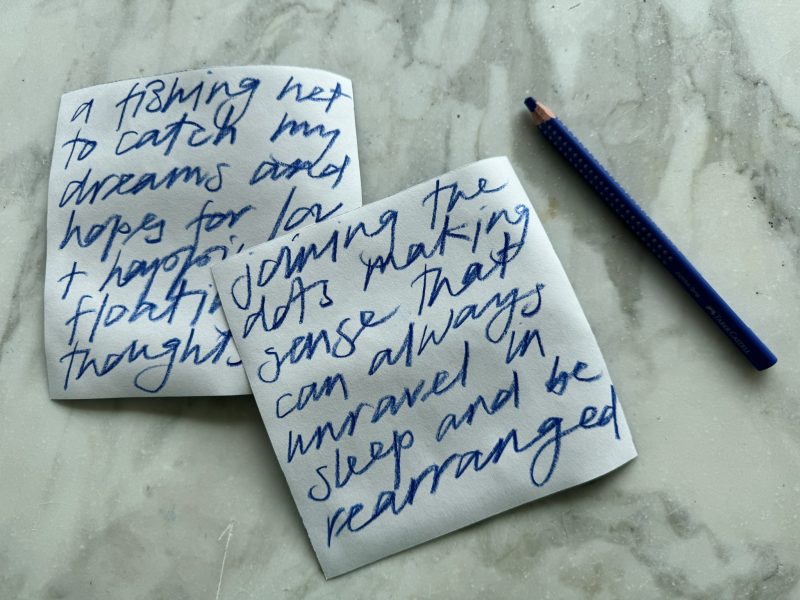 a fishing net
to catch my
dreams and
hopes for lov
+ happi
floatin
thoughts
joining the
dots making
sense that
can always
unravel in
sleep and be
rearranged
FABER-CASTELL